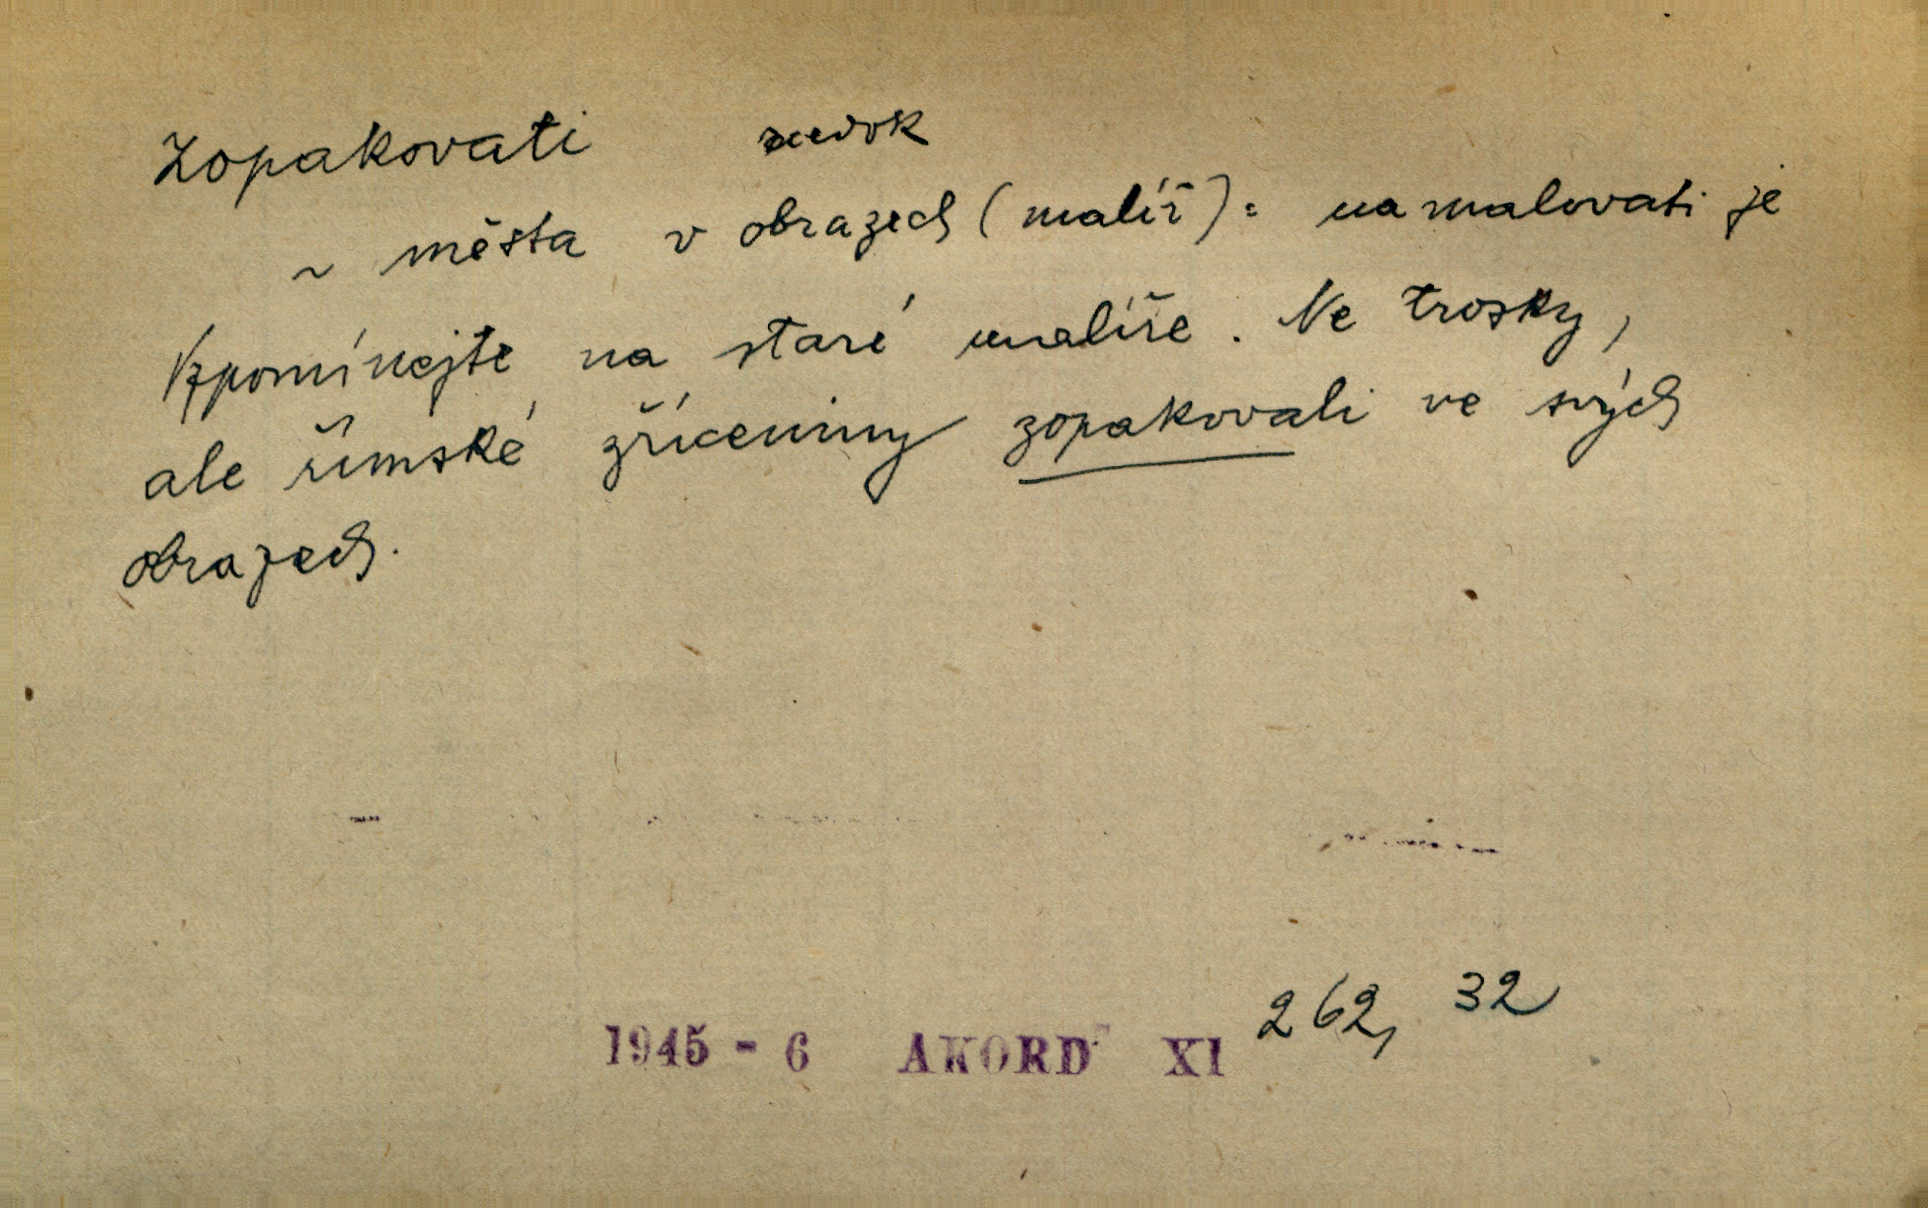 Zopakovati nedok
~ města v obrazech (malíř) = namalovati je
Vzpomínejte na staré malíře. Ne trosky,
ale římské zříceniny zopakovali ve svých
obrazech.
1945 - 6 AKORD XI 262, 32